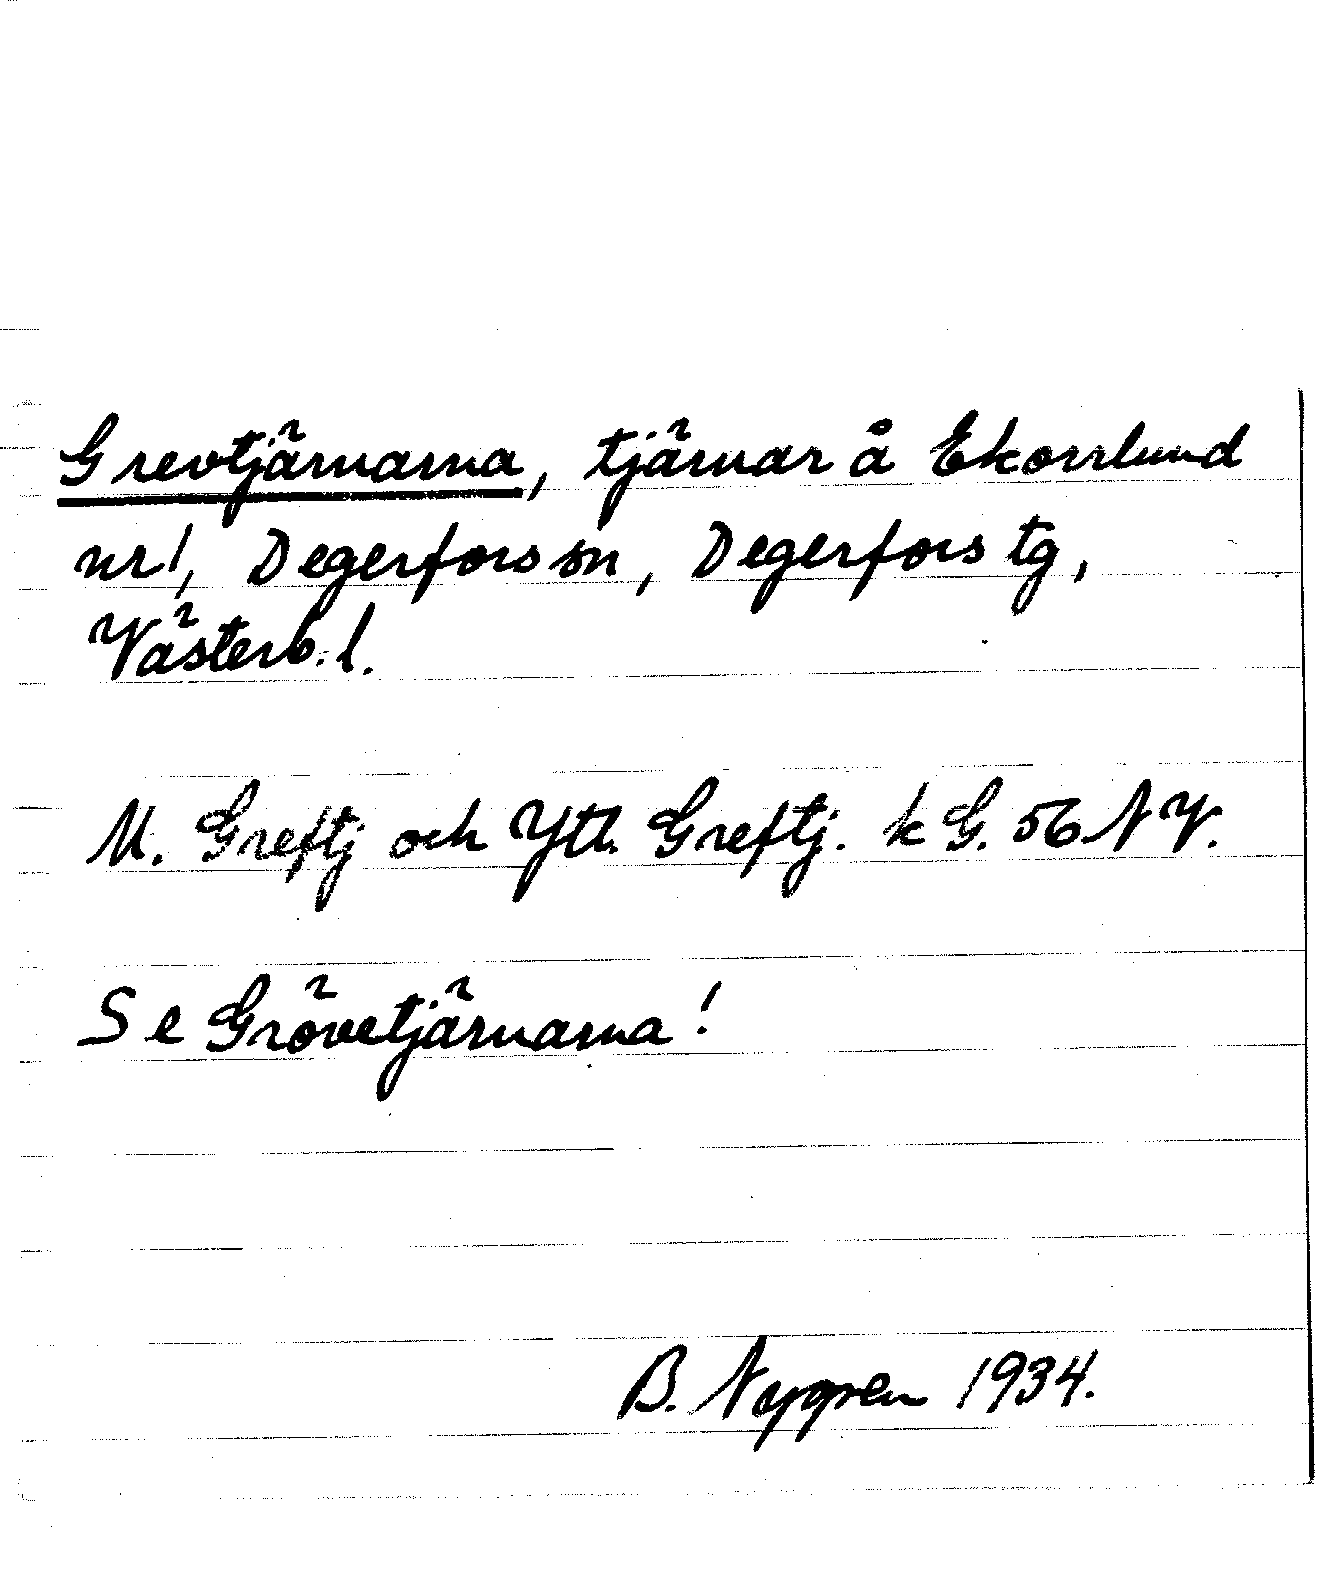 Grevtjärnarna, tjärnar å Ekorrlund
nr 1, Degerfors sn, Degerfors tg,
Västerb. l.
M. Greftj och Ytt. Greftj. k G. 56 N V.
Se Grövetjärnarna!
B. Nygren 1934.